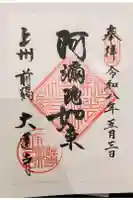 奉拝 令和八年三月三日
阿彌陀如来
上州 前橋 大蓮寺